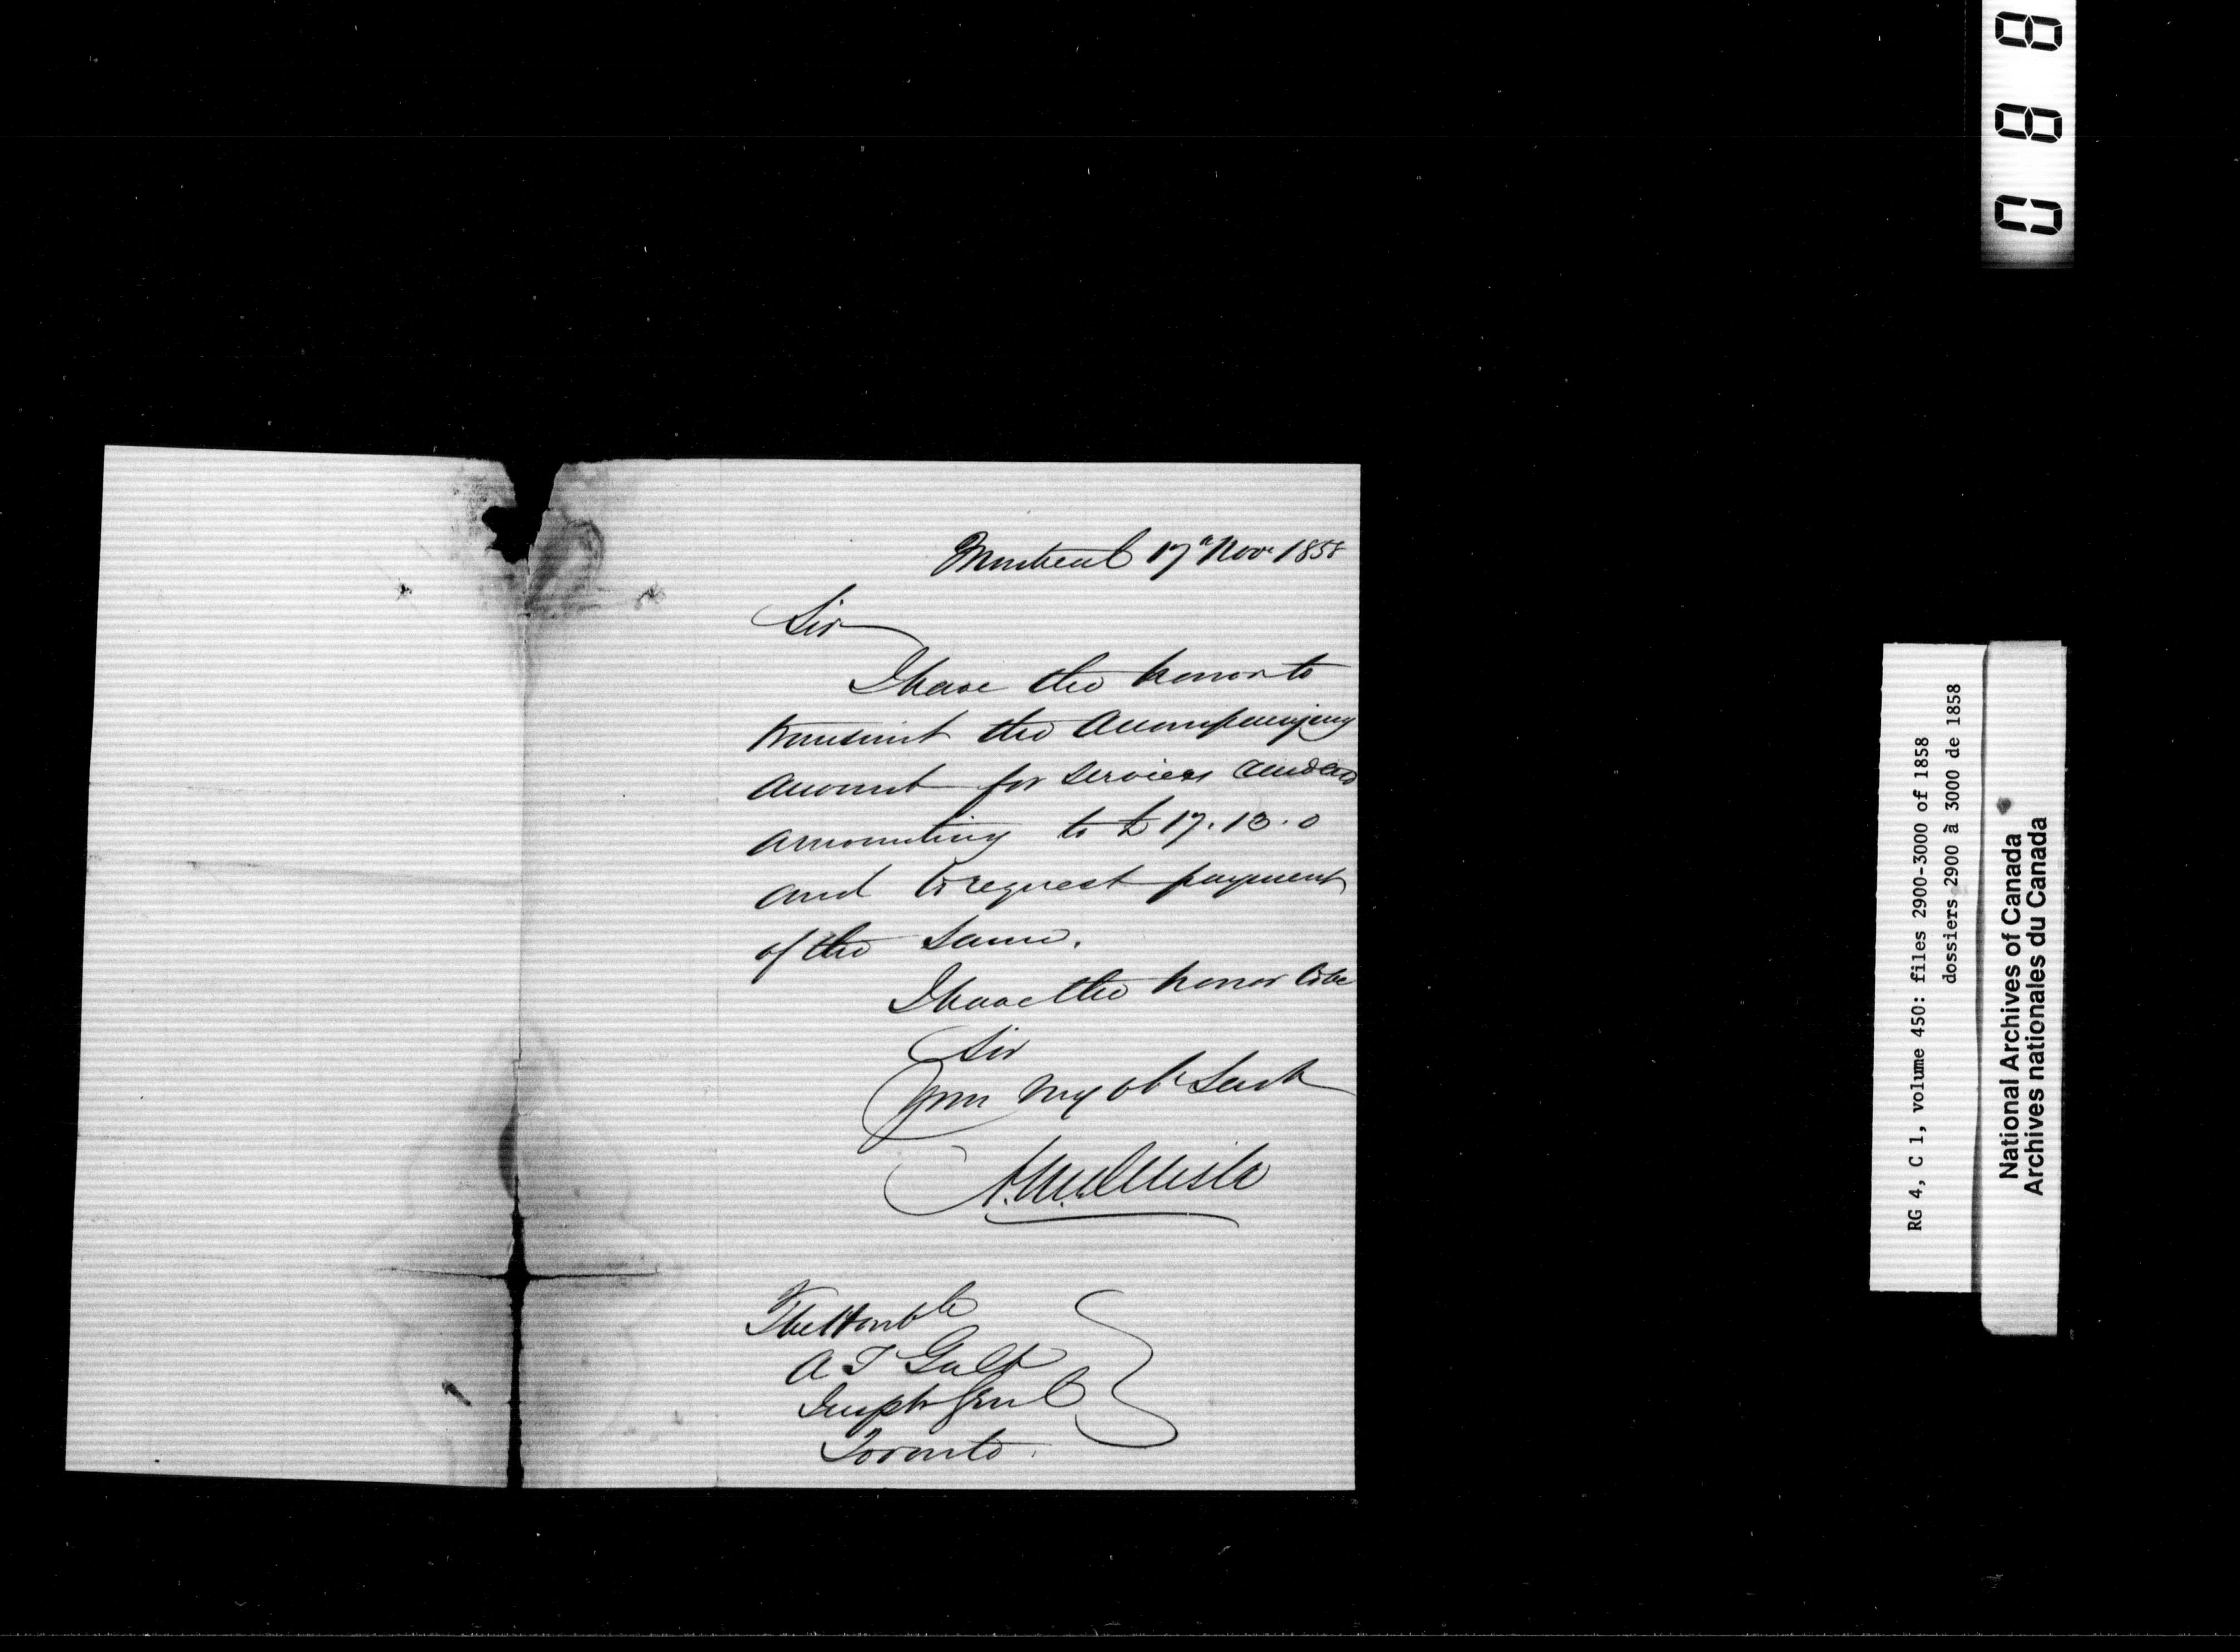 Montreal 17th Nov. 1858
Sir
I have the honor to
transmit the Accompanying
account for services rendered
amounting to £17.13.0
and to request payment
of the same.
I have the honor to be
Sir
Your My Ob Servt
The Honble
A T Galt
Inspr Genl
Toronto.
088
RG 4, C 1, volume 450: files 2900-3000 of 1858
dossiers 2900 à 3000 de 1858
National Archives of Canada
Archives nationales du Canada